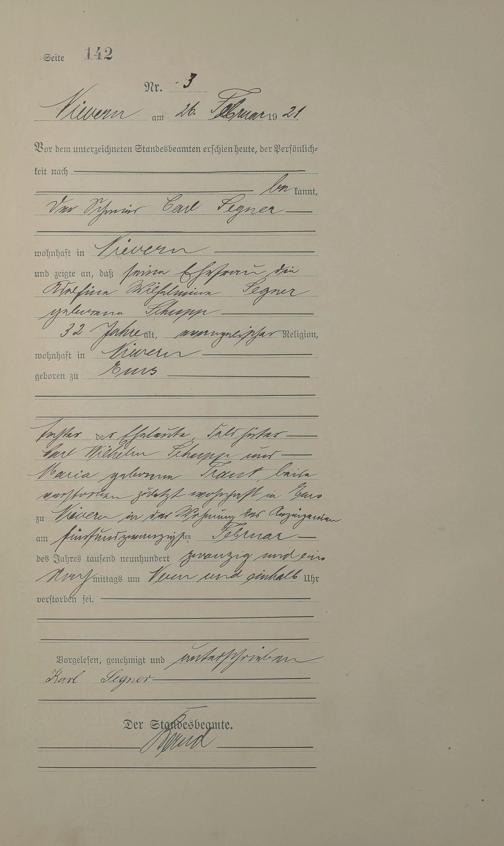 Seite 142
Nr. 3
Nievern am 26. Februar 1921.
Vor dem unterzeichneten Standesbeamten erschien heute, der Persönlich-
keit nach
be kannt,
Der Carl Segner
wohnhaft in Nievern
und zeigte an, daß seine Ehefrau die
Wilhelmine Segner
geborene Schupp
32 Jahre alt, evangelischer Religion,
wohnhaft in Nievern
geboren zu Ems
Tochter der Eheleute
Carl Wilhelm Schupp und
Maria geborene beide
verstorben zuletzt wohnhaft in Ems
zu Nievern in der Wohnung des Anzeigenden
am fünfundzwanzigsten Februar
des Jahres tausend neunhundert zwanzig und ein
Nach mittags um Neun und einhalb Uhr
verstorben sei.
Vorgelesen, genehmigt und unterschrieben
Karl Segner
Der Standesbeamte.